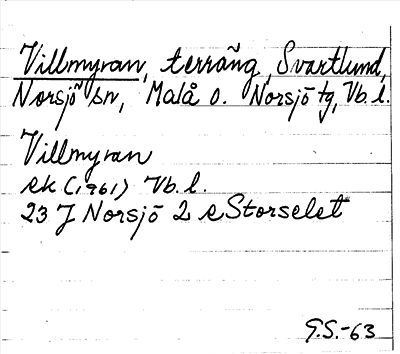 Villmyran, terräng, Svartlund,
Norsjö sn, Malå o. Norsjö tg, Vb. l.
Villmyran
ek (1961) Vb. l.
23 J Norsjö 2 e Storselet
G.S.-63